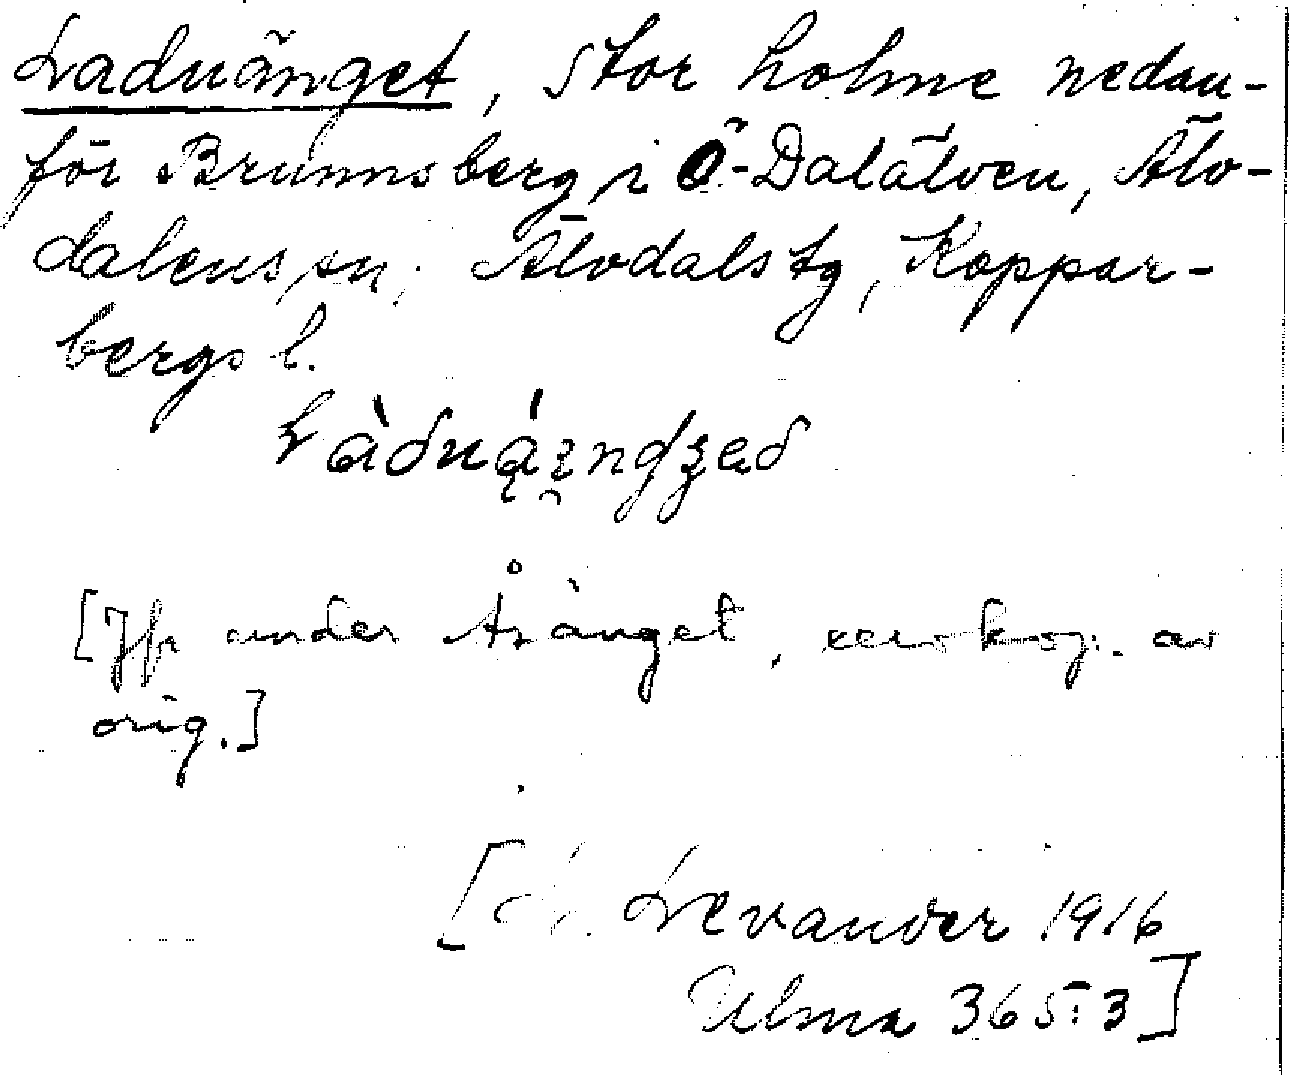 Laduänget, stor holme nedan-
för Brunnsberg, i Ö-Dalälven, Älv-
dalens sn, Älvdals tg, Koppar-
bergs l.
[Jfr under Åsänget, xerokop. av
orig.]
Levander 1916
Ulma 365:3]